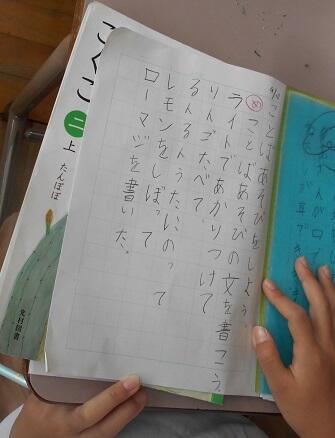 ことばあそびをしよう。
め ことばあそびの文を書こう。
ライトであかりつけて
りんごたべて
るんるんうたにのって
レモンをしぼって
ローマジを書いた。
こくご
二上
たんぽぽ
光村図書